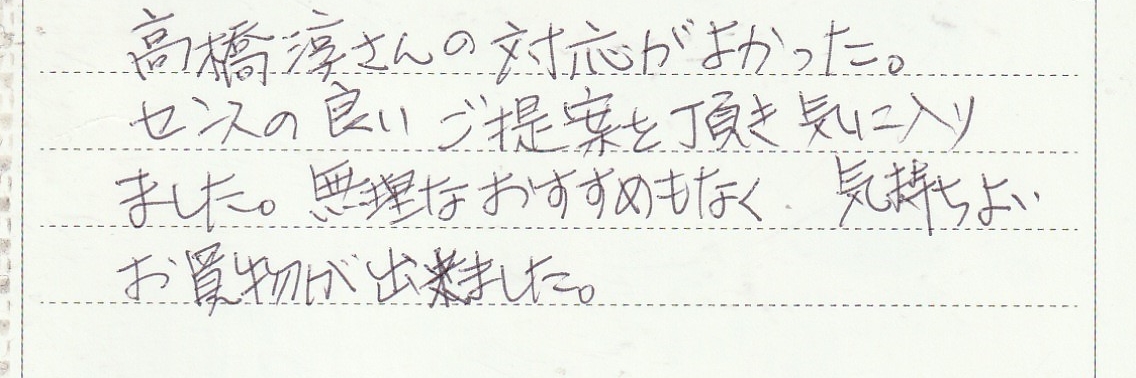 高橋淳さんの対応がよかった。
センスの良いご提案を頂き気に入り
ました。無理なおすすめもなく 気持ちよい
お買物が出来ました。